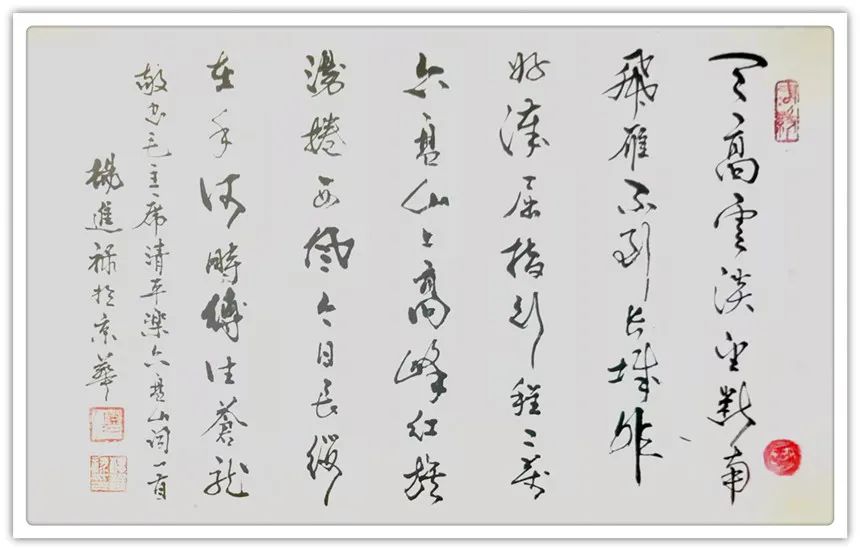 天高雲淡望断南
飛雁不到长城非
好漢屈指行程二萬
六盘山上高峰红旗
漫捲西風今日長缨
在手何時縛住蒼龍
敬书毛主席清平樂六盘山词一首
楊進禄於京華